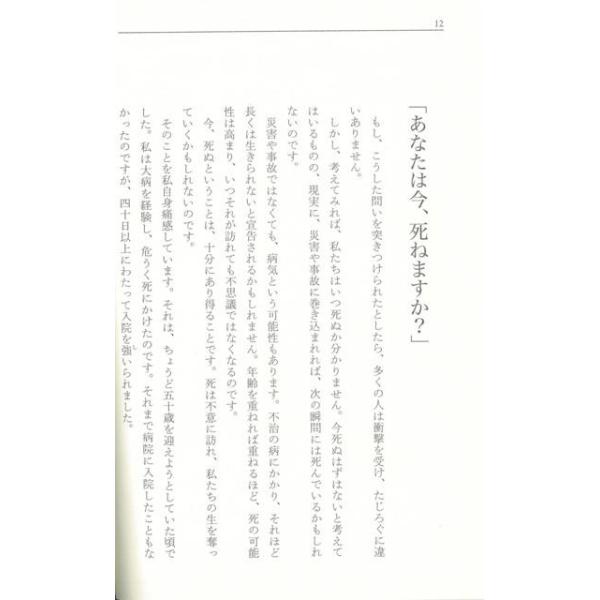 12
「あなたは今、死ねますか？」
もし、こうした問いを突きつけられたとしたら、多くの人は衝撃を受け、たじろぐに違
いありません。
しかし、考えてみれば、私たちはいつ死ぬか分かりません。今死ぬはずはないと考えて
はいるものの、現実に、災害や事故に巻き込まれれば、次の瞬間には死んでいるかもしれ
ないのです。
災害や事故ではなくても、病気という可能性もあります。不治の病にかかり、それほど
長くは生きられないと宣告されるかもしれません。年齢を重ねれば重ねるほど、死の可能
性は高まり、いつそれが訪れても不思議ではなくなるのです。
今、死ぬということは、十分にあり得ることです。死は不意に訪れ、私たちの生を奪っ
ていくかもしれないのです。
そのことを私自身痛感しています。それは、ちょうど五十歳を迎えようとしていた頃で
した。私は大病を経験し、危うく死にかけたのです。それまで病院に入院したこともな
かったのですが、四十日以上にわたって入院を強いられました。